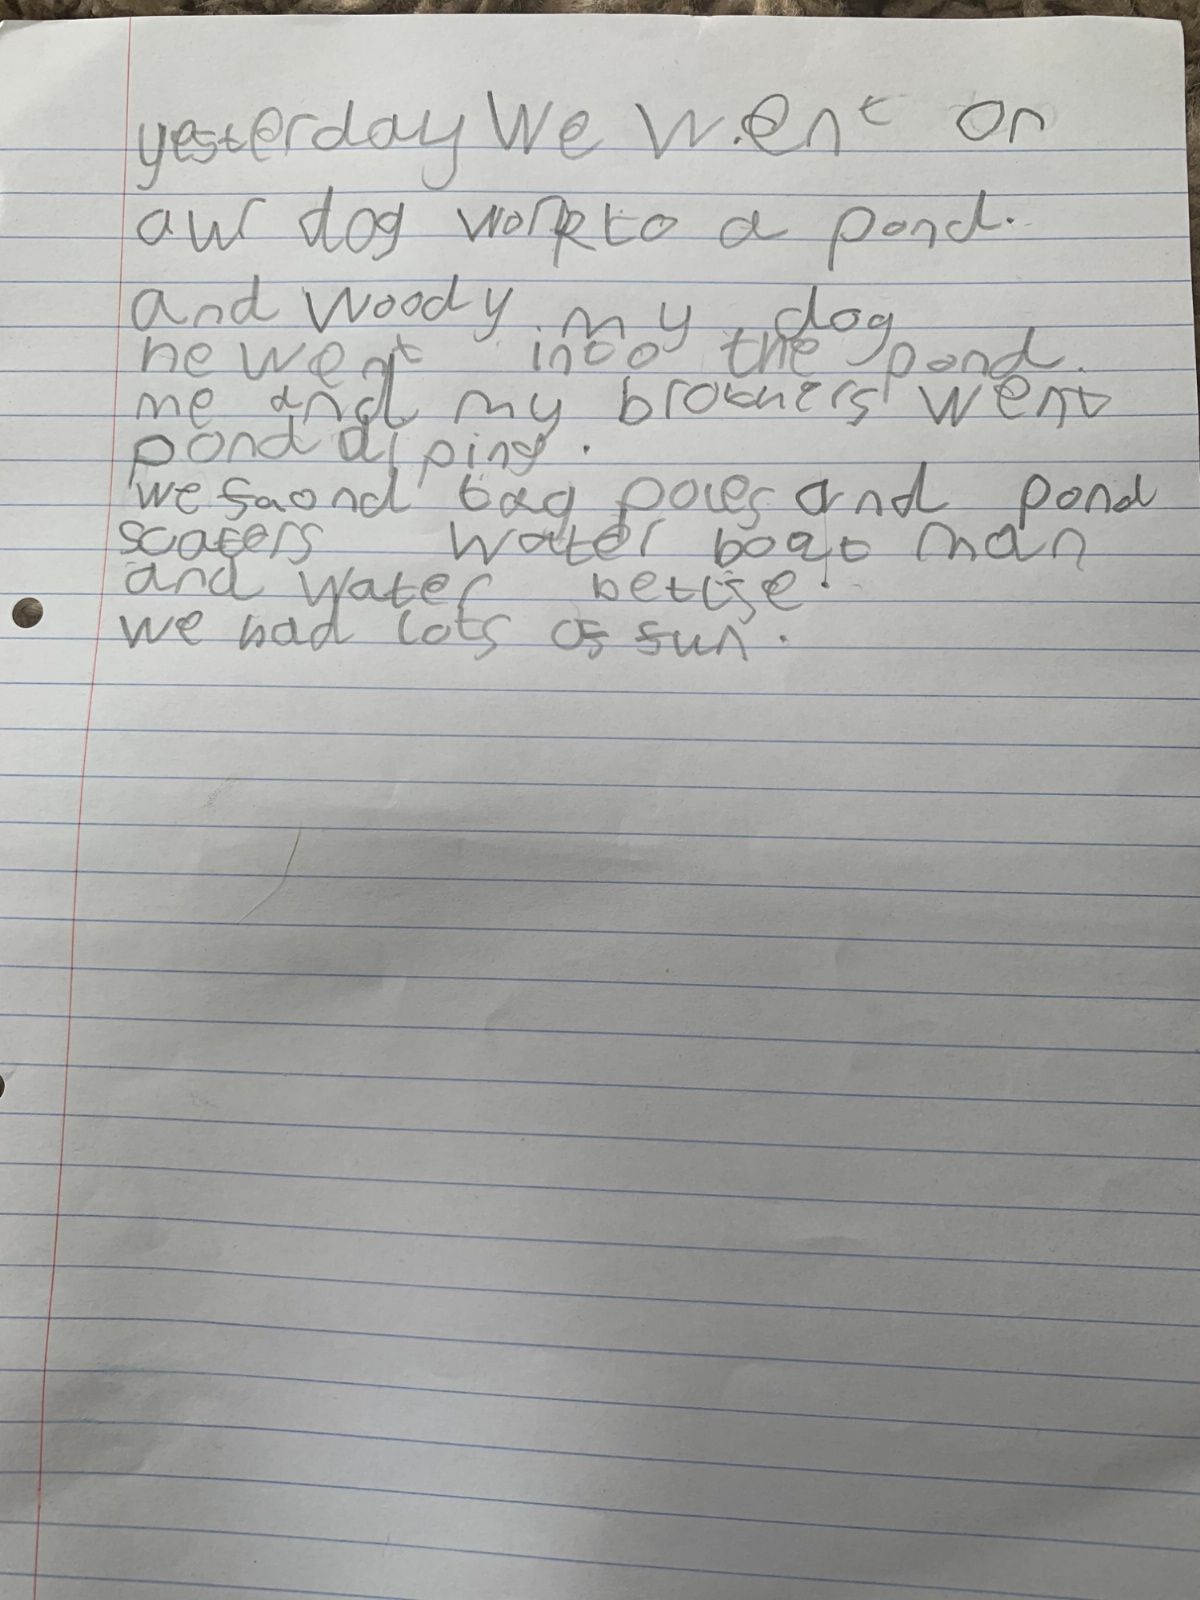 yesterday We went on
awr dog work to a pond.
and Woody my dog
he went into the pond.
me and my brothers went
pond diping.
we faond tag poles and pond
scaters water boat man
and water betlse.
we had lots of fun.